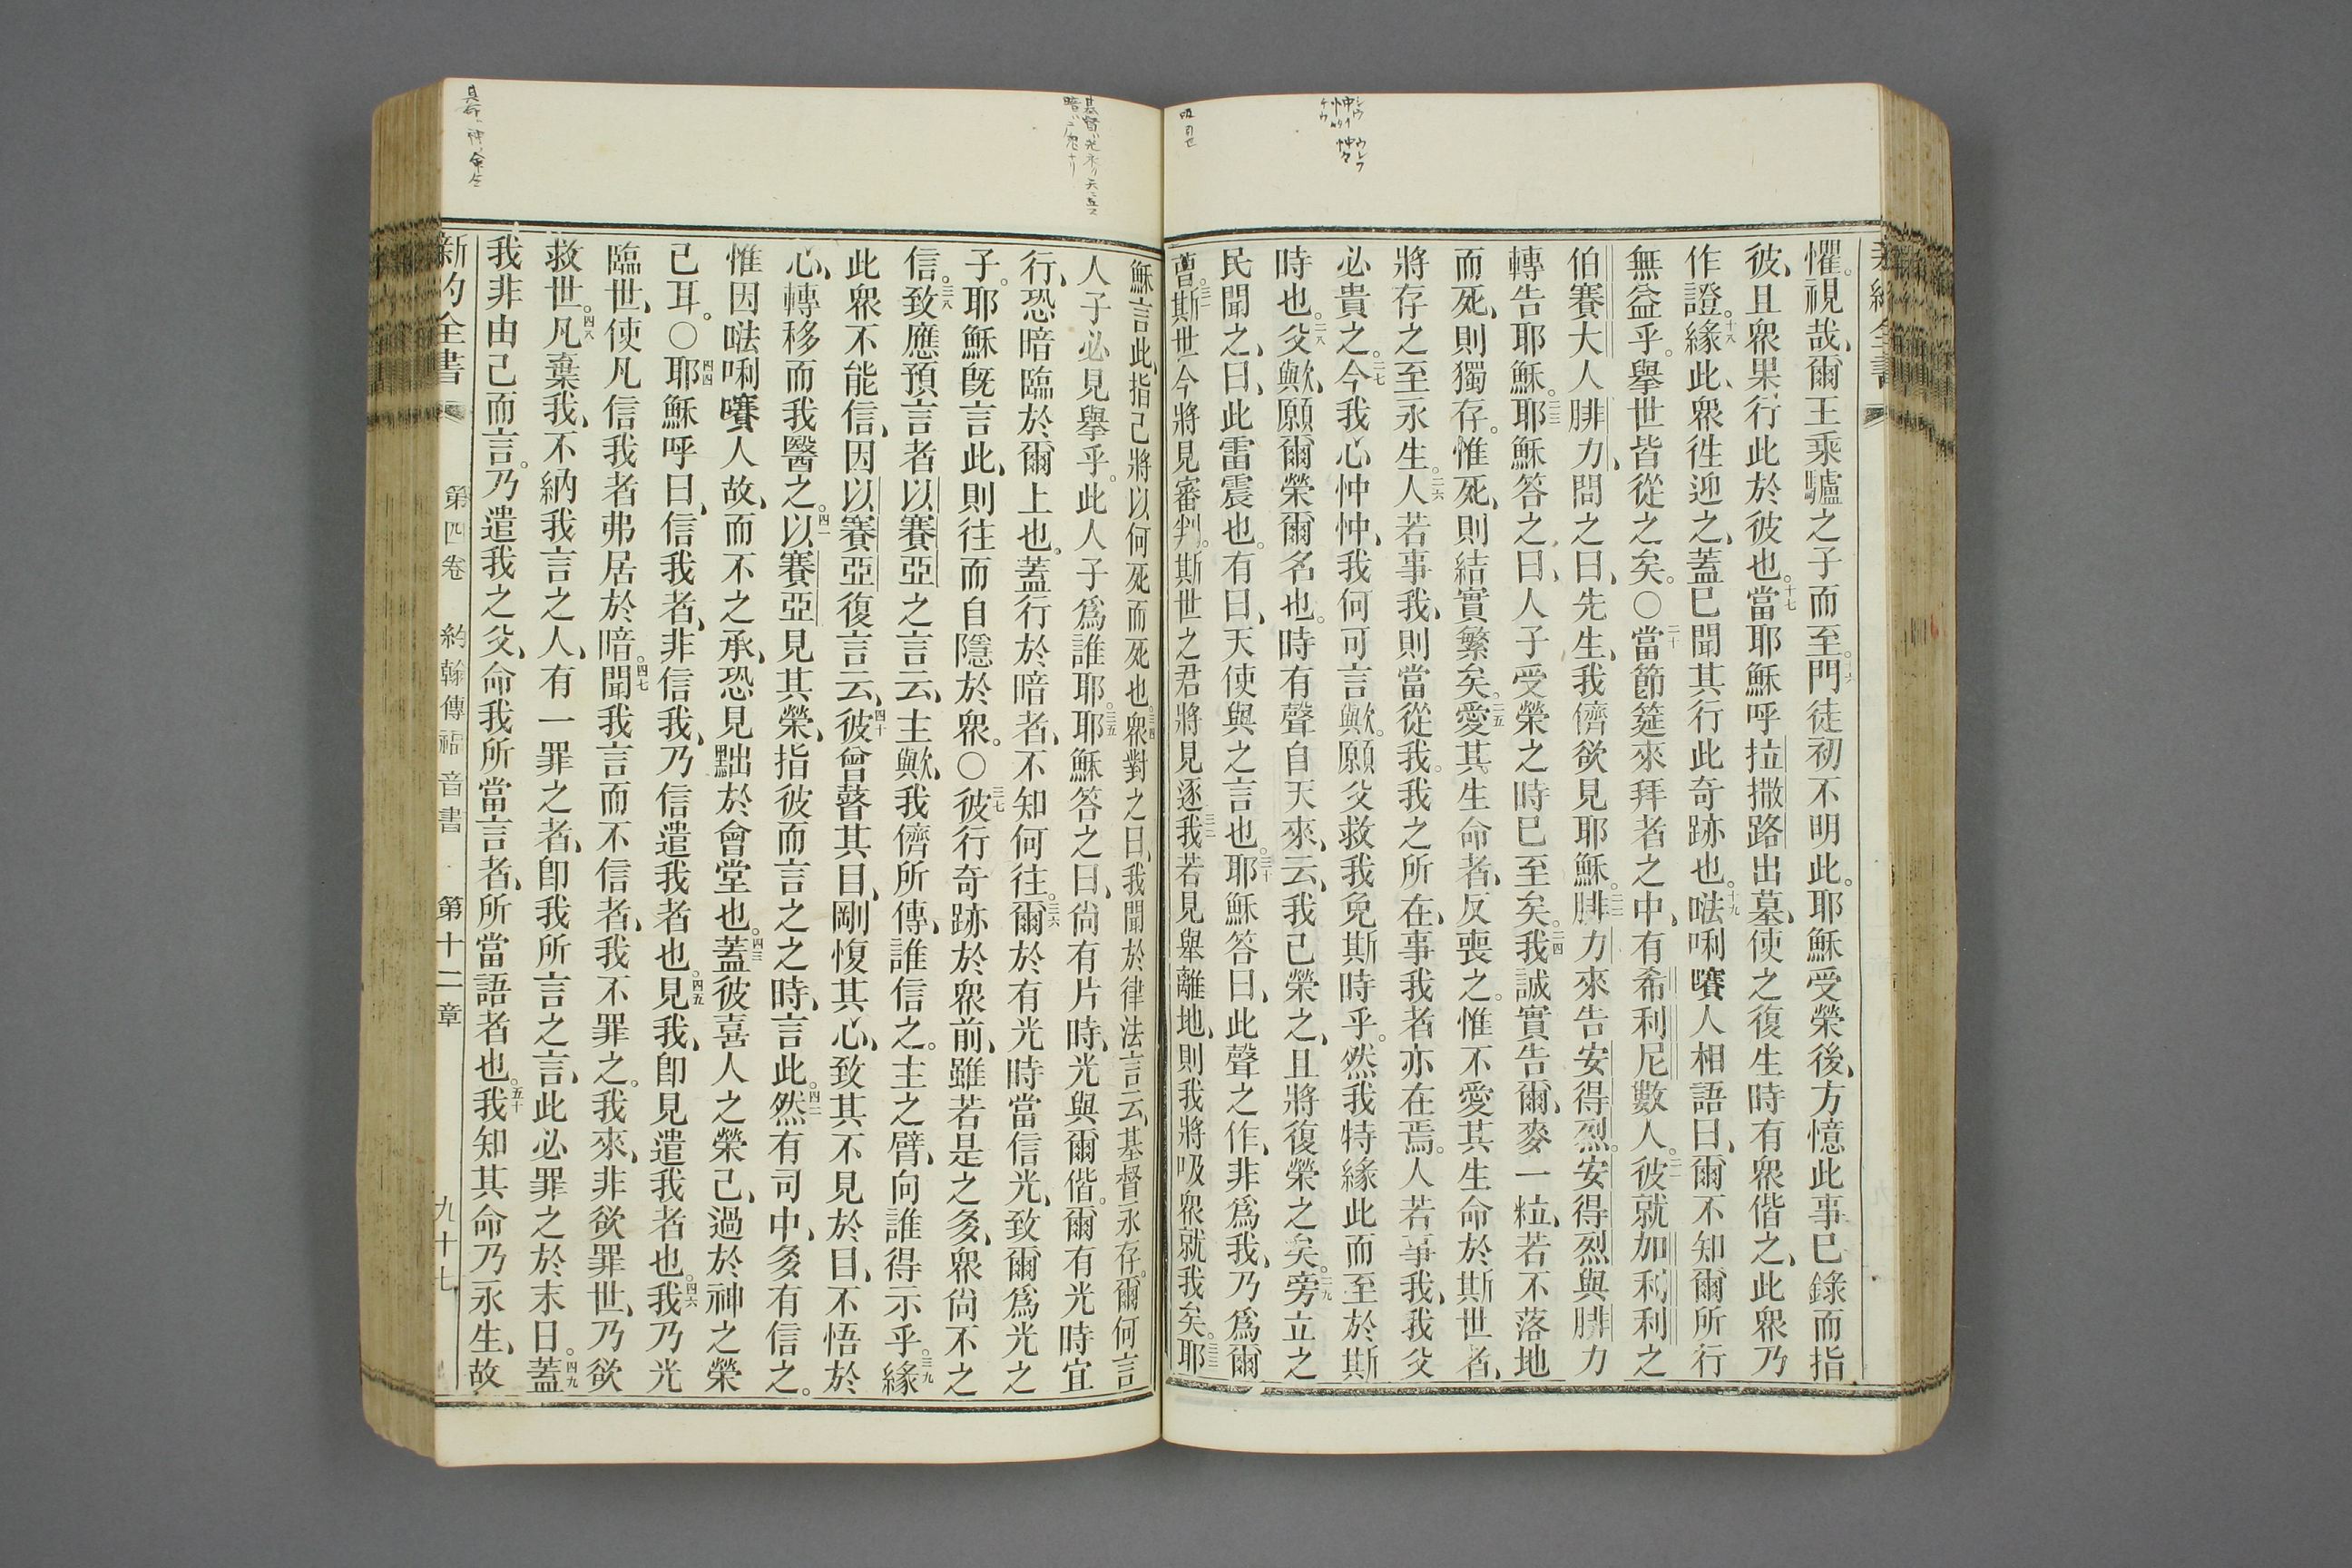 懼。視哉、爾王乘驢之子而至。十六門徒初不明此。耶穌受榮後、方憶此事已錄而指
彼、且衆果行此於彼也。十七當耶穌呼拉撒路出墓、使之復生時有衆偕之、此衆乃
作證。十八緣此、衆徃迎之、蓋已聞其行此奇跡也。十九㗲唎㘔人相語曰、爾不知爾所行
無益乎。擧世皆從之矣。○二十當節筵來拜者之中、有希利尼數人。二一彼就加利利之
伯賽大人腓力、問之曰、先生、我儕欲見耶穌。二二腓力來告安得烈。安得烈與腓力
轉告耶穌。二三耶穌答之曰、人子受榮之時已至矣。二四我誠實告爾、麥一粒、若不落地
而死、則獨存。惟死、則結實繁矣。二五愛其生命者、反喪之。惟不愛其生命於斯世者、
將存之至永生。二六人若事我、則當從我。我之所在、事我者亦在焉。人若事我、我父
必貴之。二七今我心忡忡、我何可言歟。願父救我免斯時乎。然我特緣此而至於斯
時也。二八父歟、願爾榮爾名也。時有聲自天來、云、我已榮之、且將復榮之矣。二九旁立之
民聞之、曰、此雷震也。有曰、天使與之言也。三十耶穌答曰、此聲之作、非爲我、乃爲爾
曹。三一斯世今將見審判。斯世之君將見逐。三二我若見舉離地、則我將吸衆就我矣。三三耶
穌言此、指己將以何死而死也。三四衆對之曰、我聞於律法言云、基督永存。爾何言
人子必見擧乎。此人子爲誰耶。三五耶穌答之曰、尙有片時、光與爾偕。爾有光時宜
行、恐暗臨於爾上也。蓋行於暗者、不知何往。三六爾於有光時當信光、致爾爲光之
子。耶穌旣言此、則往而自隱於衆。○三七彼行奇跡於衆前、雖若是之多、衆尙不之
信。三八致應預言者以賽亞之言云、主歟、我儕所傳、誰信之。主之臂、向誰得示乎。三九緣
此衆不能信、因以賽亞復言云、四十彼曾瞽其目、剛愎其心、致其不見於目、不悟於
心、轉移而我醫之。四一以賽亞見其榮、指彼而言之之時、言此。四二然有司中、多有信之。
惟因㗲唎㘔人故、而不之承、恐見黜於會堂也。四三蓋彼喜人之榮己、過於神之榮
己耳。○四四耶穌呼曰、信我者、非信我、乃信遣我者也。四五見我、卽見遣我者也。四六我乃光
臨世、使凡信我者弗居於暗。四七聞我言而不信者、我不罪之。我來、非欲罪世、乃欲
救世。四八凡棄我、不納我言之人、有一罪之者、卽我所言之言、此必罪之於末日。四九蓋
我非由己而言。乃遣我之父、命我所當言者、所當語者也。五十我知其命乃永生、故
新約全書 第四卷 約翰傳福音書 第十二章 九十七